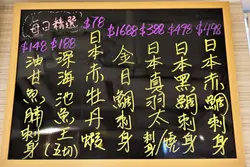 每日精選
$498
日本赤鯛刺身
$498
日本黑鯛刺身
$388
日本真羽太
刺身/燒
$1688
金目鯛刺身
$78
日本赤牡丹蝦
$188
深海池魚王(五切)
$148
油甘魚腩刺身